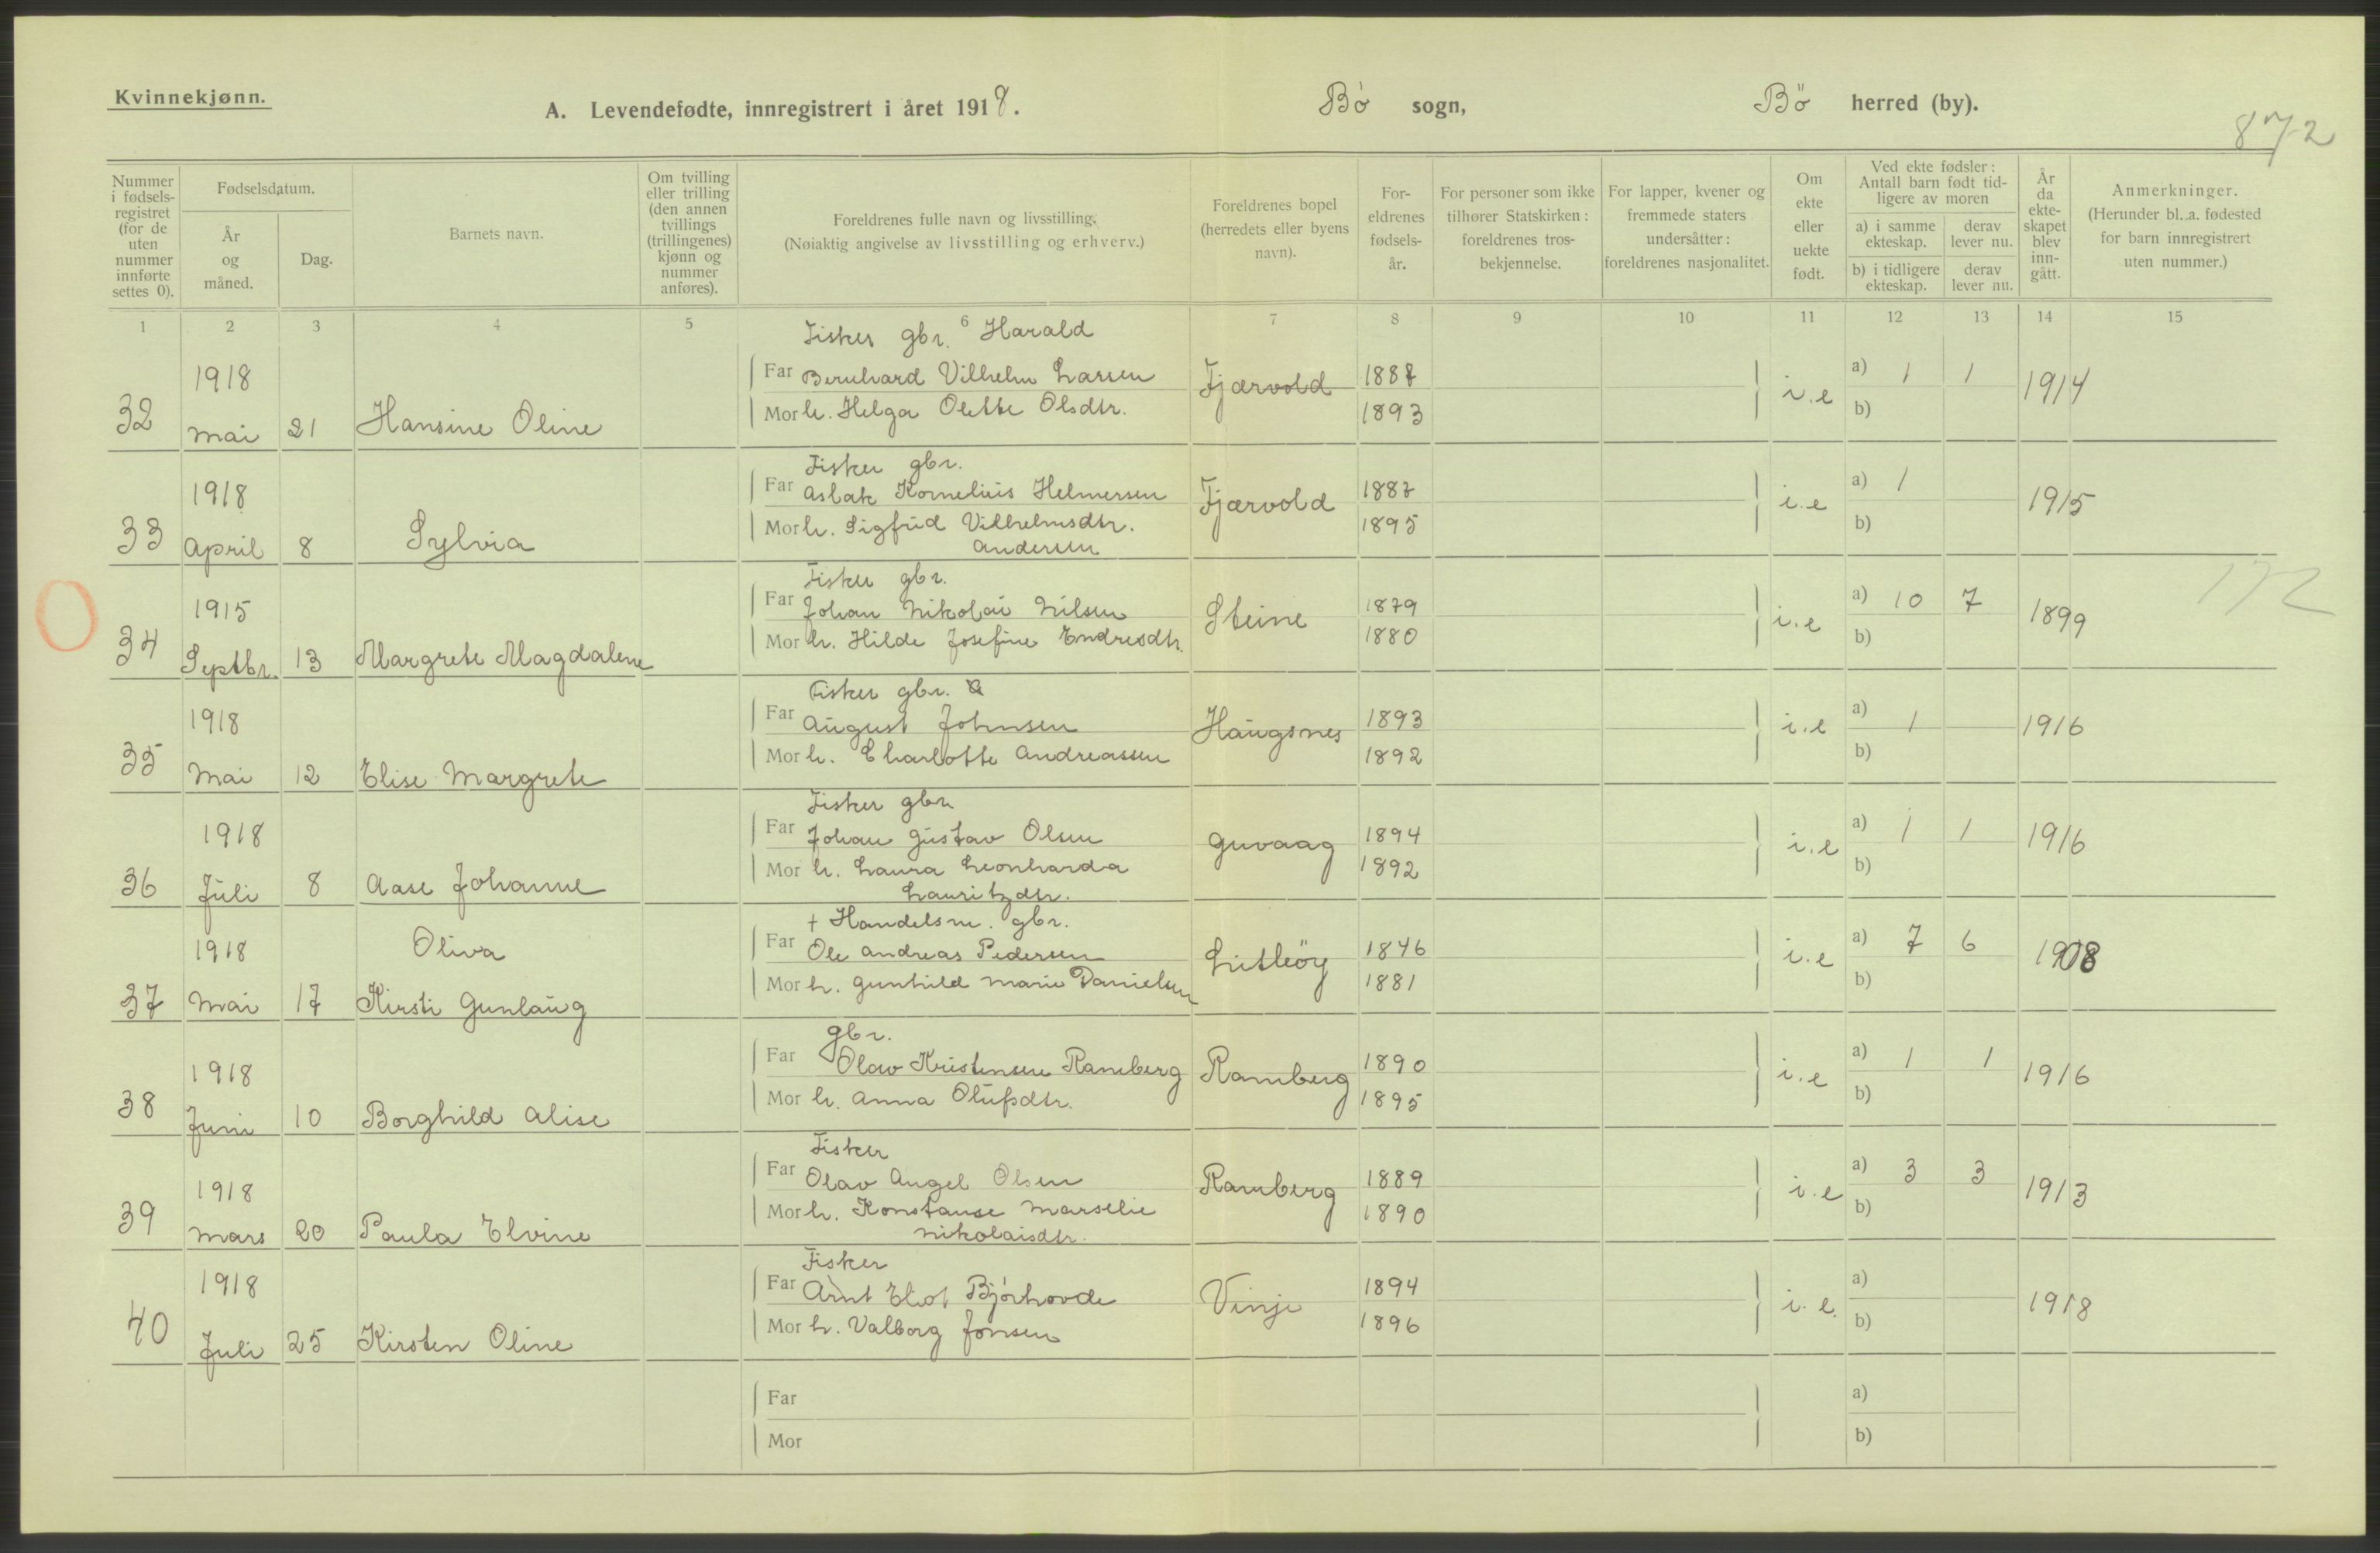 Kvinnekjønn.
A. Levendefødte, innregistrert i året 1918. Bø sogn, Bö herred (by).
872
Nummer i fødsels-registret (for de uten nummer innførte settes 0).
Fødselsdatum.
År og måned.
Dag.
Barnets navn.
Om tvilling eller trilling (den annen tvillings (trillingenes) kjønn og nummer anføres).
Foreldrenes fulle navn og livsstilling.
(Nøiaktig angivelse av livsstilling og erhverv.)
Foreldrenes bopel (herredets eller byens navn).
For-eldrenes fødsels-år.
For personer som ikke tilhører Statskirken: foreldrenes tros-bekjennelse.
For lapper, kvener og fremmede staters undersåtter: foreldrenes nasjonalitet.
Om ekte eller uekte født.
Ved ekte fødsler: Antall barn født tid-ligere av moren
a) i samme ekteskap.
derav lever nu.
b) i tidligere ekteskap.
derav lever nu.
År da ekte-skapet blev inn-gått.
Anmerkninger.
(Herunder bl. a. fødested for barn innregistrert uten nummer.)
1 2 3 4 5 6 7 8 9 10 11 12 13 14 15
Fisker gbr. Harald
1918 Far Bernhard Vilhelm Larsen Fjærvold 1887 i.e a) 1 1 1914
32 mai 21 Hansine Oline Mor h. Helga Olette Olsdtr. 1893 b)
Fisker gbr.
1918 Far Aslak Kornelius Helmersen Fjærvold 1887 i.e a) 1 1915
33 April 8 Sylvia Mor h. Sigfrid Vilhelmsdtr. 1895 b)
Andersen
Fisker gbr.
1915 Far Johan Nikolai Nilsen Steine 1879 i.e a) 10 7 1899
172
34 Septbr. 13 Margrete Magdalene Mor h. Hilde Josefine Endresdtr. 1880 b)
Fisker gbr.
1918 Far August Johnsen Haugsnes 1893 i.e a) 1 1916
35 Mai 12 Elise Margrete Mor h. Charlotte Andreassen 1892 b)
Fisker gbr
1918 Far Johan Gustav Olsen Guvaag 1894 i.e a) 1 1 1916
36 Juli 8 Aase Johanne Mor h. Laura Leonharda 1892 b)
Lauritzdtr.
+ Handelsm. gbr.
1918 Oliva Far Ole Andreas Pedersen Litleöy 1846 i.e a) 7 6 1908
37 Mai 17 Kirsti Gunlaug Mor h. Gunhild Marie Danielsen 1881 b)
gbr.
1918 Far Olav Kristensen Ramberg Ramberg 1890 i.e a) 1 1 1916
38 Juni 10 Borghild Alise Mor h. Anna Olufsdtr. 1895 b)
Fisker
1918 Far Olav Angel Olsen Ramberg 1889 i.e a) 3 3 1913
39 Mars 20 Paula Elvine Mor h. Konstanse Marselie 1890 b)
Nikolaisdtr.
Fisker
1918 Far Arnt Bjørhovde Vinje 1894 i.e. a) 1918
40 Juli 25 Kirsten Oline Mor h. Valborg Jonsen 1896 b)
Far a)
Mor b)